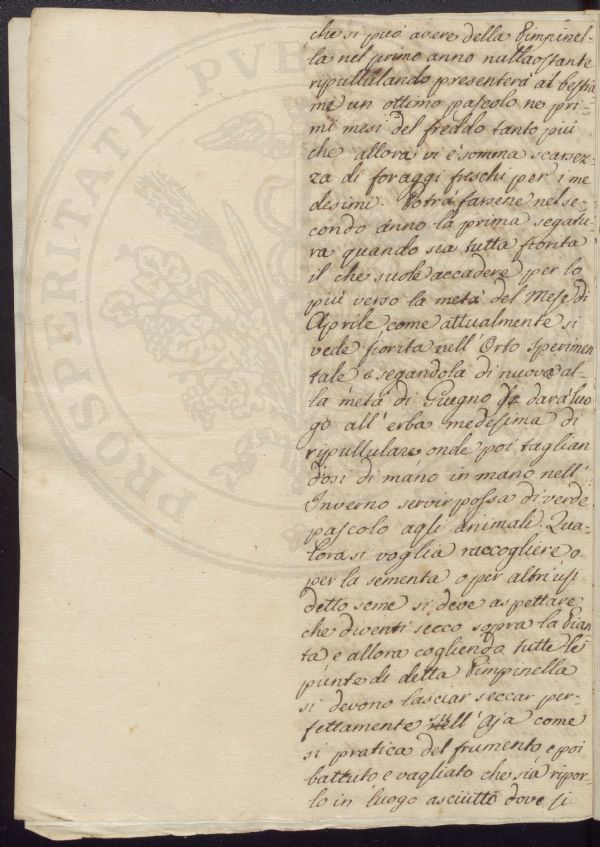 che si può avere della Pimpinel-
la nel primo anno nulla ostante
ripullulando presenterà al bestia
me un ottimo pascolo ne pri-
mi mesi del freddo tanto più
che allora vi è somma scarsez-
za di foraggi freschi per i me
desimi. Potrà farsene nel se-
condo anno la prima segatu-
ra quando sia tutta fiorita
il che suole accadere per lo
più verso la metà del Mese di
Aprile come attualmente si
vede fiorita nell' Orto Sperimen
tale e segandola di nuovo al-
la metà di Giugno darà luo
go all' erba medesima di
ripullulare onde poi taglian
dosi di mano in mano nell'
Inverno servir possa di verde
pascolo agli animali. Qua-
lora si voglia raccogliere o
per la sementa o per altri usi
detto seme si deve aspettare
che diventi secco sopra la Pian
ta e allora cogliendo tutte le
punte di detta Pimpinella
si devono lasciar seccar per-
fettamente sull' Aja come
si pratica del frumento e poi
battuto e vagliato che sia ripor-
lo in luogo asciutto dove si
PROSPERITATI PVB